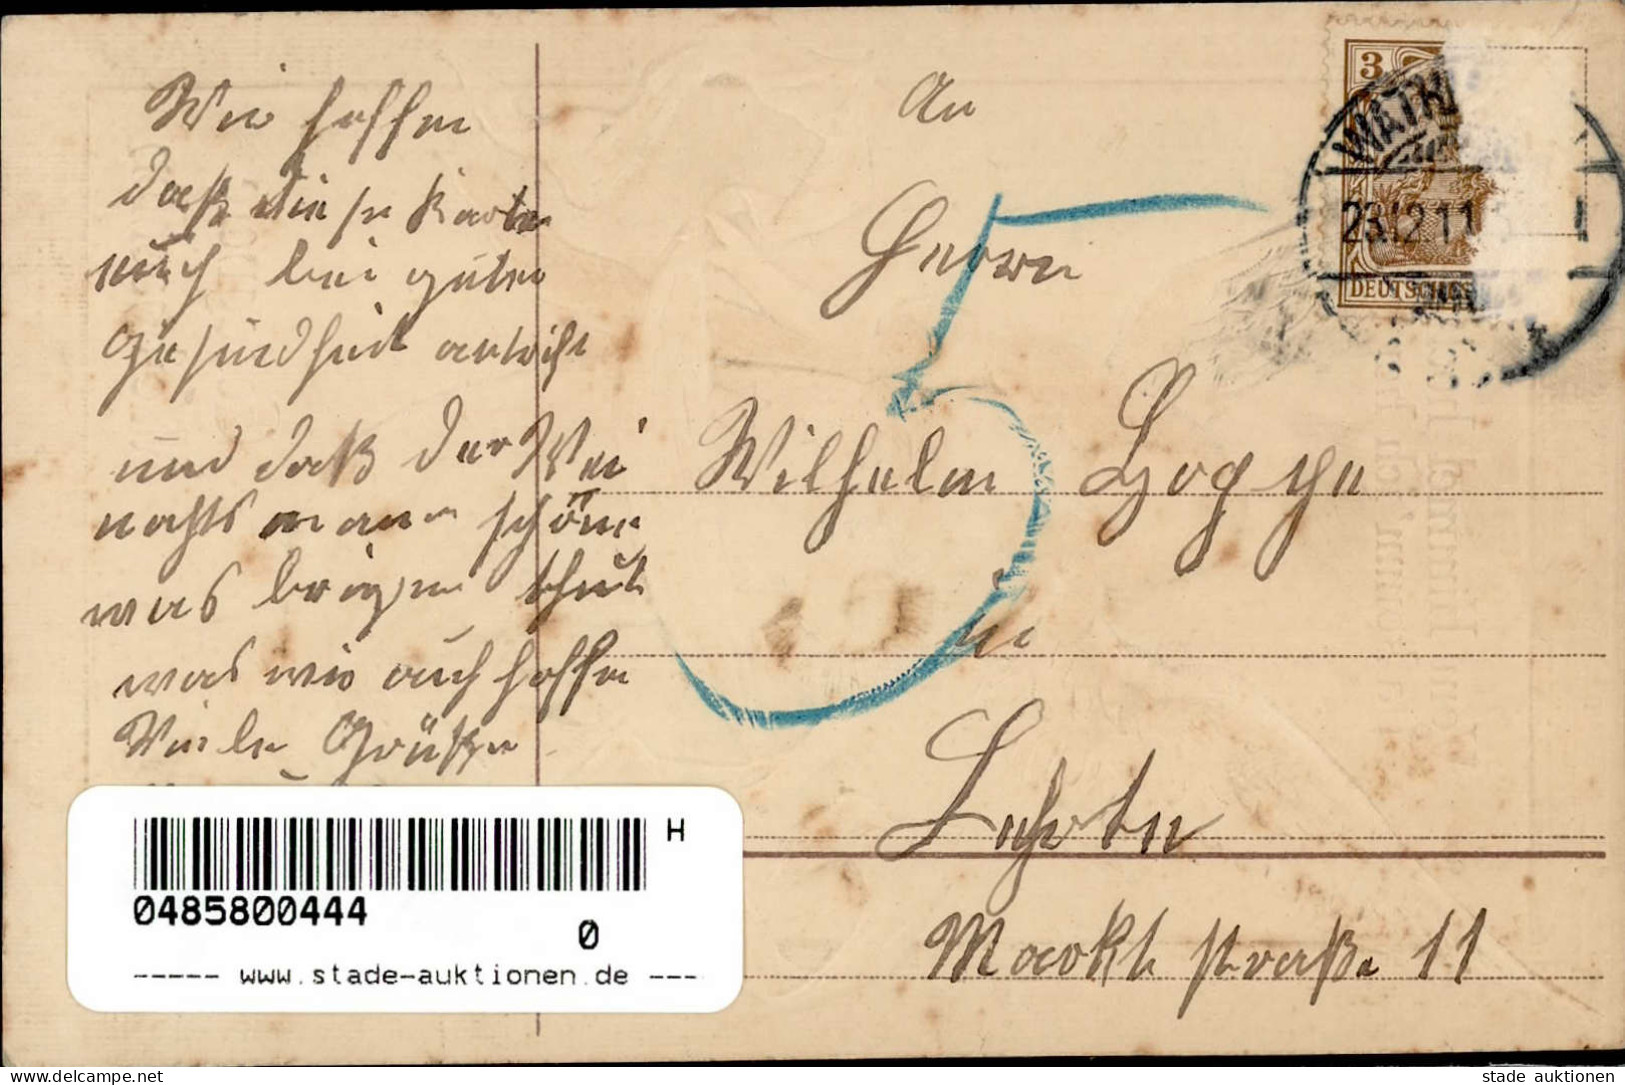 Wir hoffen
daß diese Karte
euch bei guter
Gesundheit antrifft
und daß der Wei
nachtsmann schöne
was brigen thut
was wir auch hoffen
Viele Grüße
An
Herrn
Wilhelm
in
Lehrte
Marktstraße 11
5
3
23.12.11
DEUTSCHES
H
0485800444
0
----- www.stade-auktionen.de ---
Delcampe.net
stade auktionen